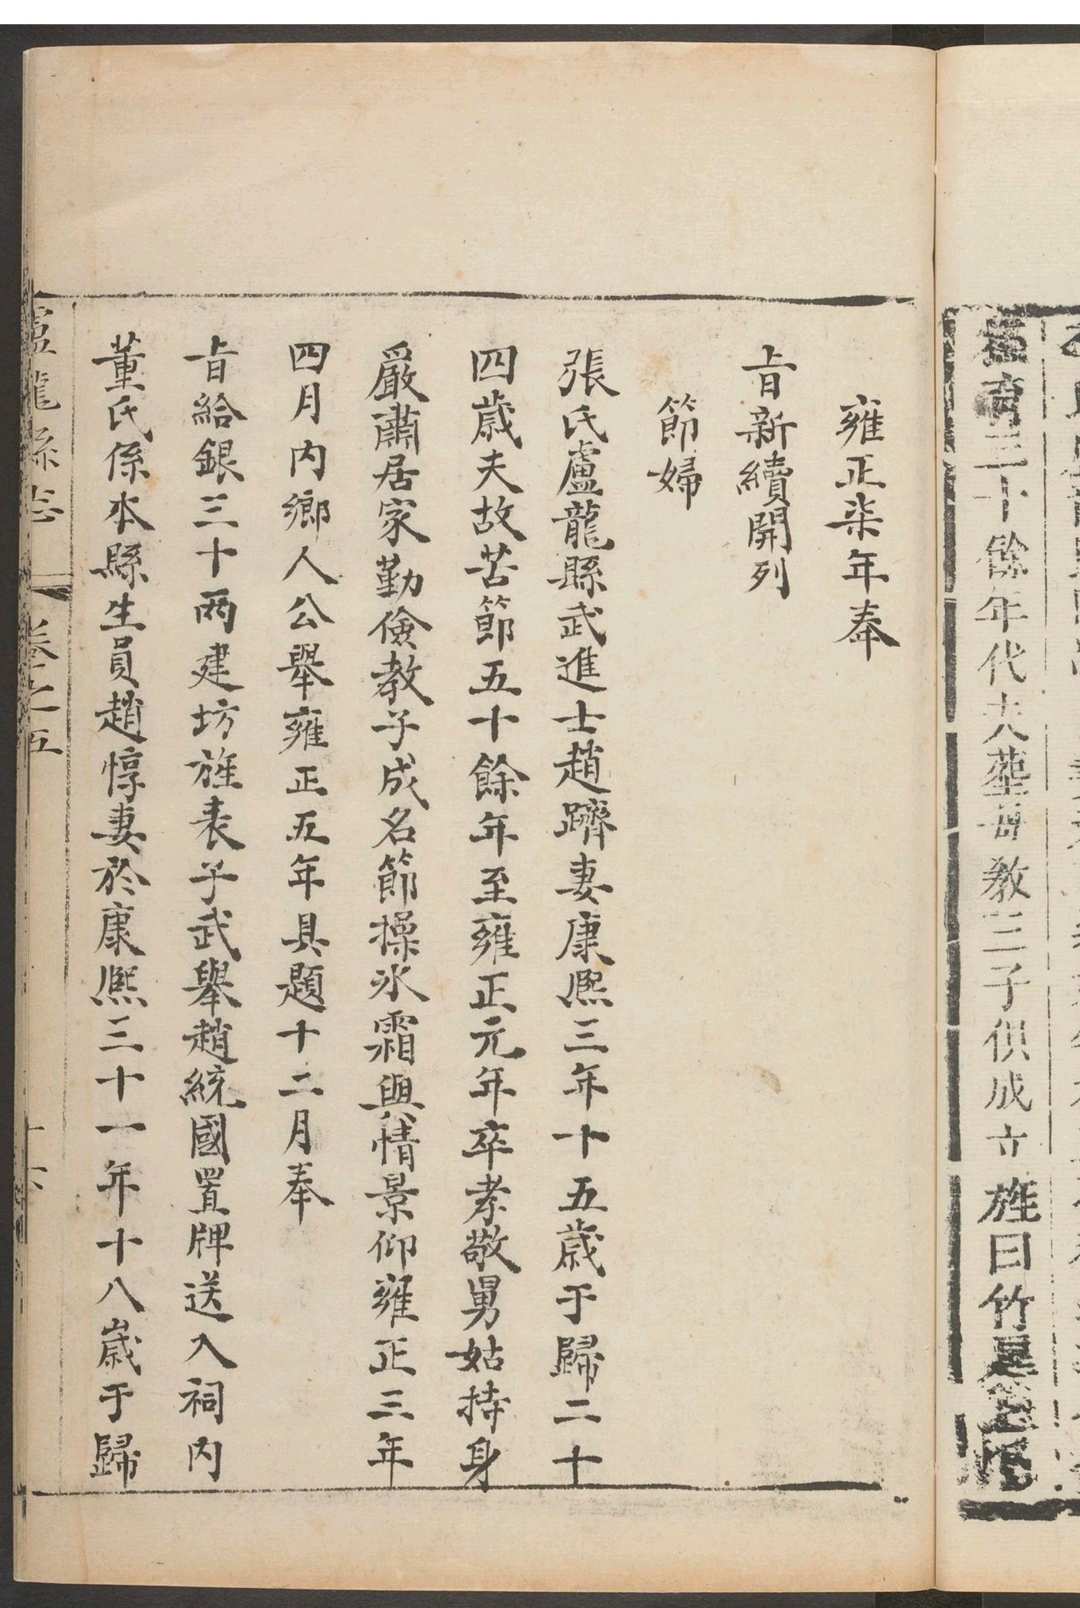 三十餘年代夫塟母教三子俱成立旌曰竹
雍正柒年奉
旨新續開列
節婦
張氏盧龍縣武進士趙躋妻康熙三年十五歲于歸二十
四歲夫故苦節五十餘年至雍正元年卒孝敬舅姑持身
嚴肅居家勤儉教子成名節操氷霜輿情景仰雍正三年
四月內鄉人公舉雍正五年具題十二月奉
旨給銀三十兩建坊旌表子武舉趙統國置牌送入祠內
董氏係本縣生員趙惇妻於康熙三十一年十八歲于歸
盧龍縣志
卷之五